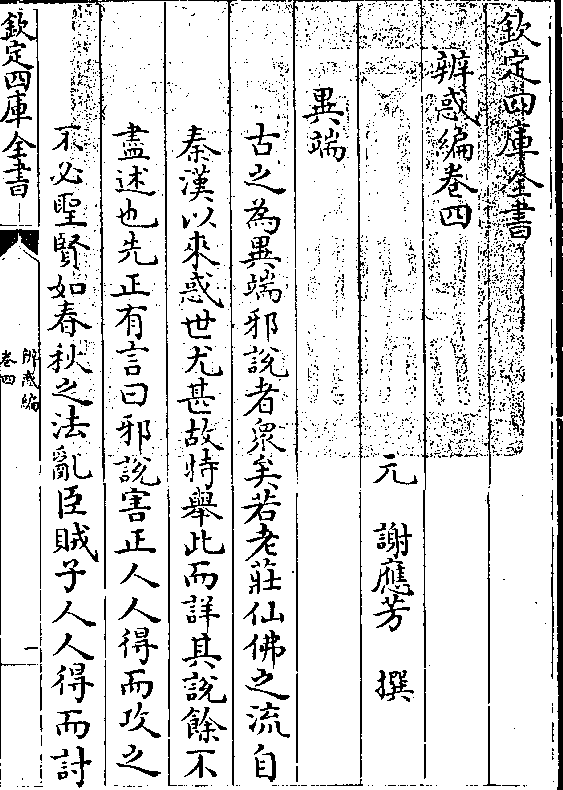 欽定四庫全書
辨惑編卷四
元　謝應芳　撰
異端
古之為異端邪說者衆矣若老莊仙佛之流自
秦漢以來惑世尤甚故特舉此而詳其說餘不
盡述也先正有言曰邪說害正人人得而攻之
不必聖賢如春秋之法亂臣賊子人人得而討
欽定四庫全書
辨惑編
卷四
一